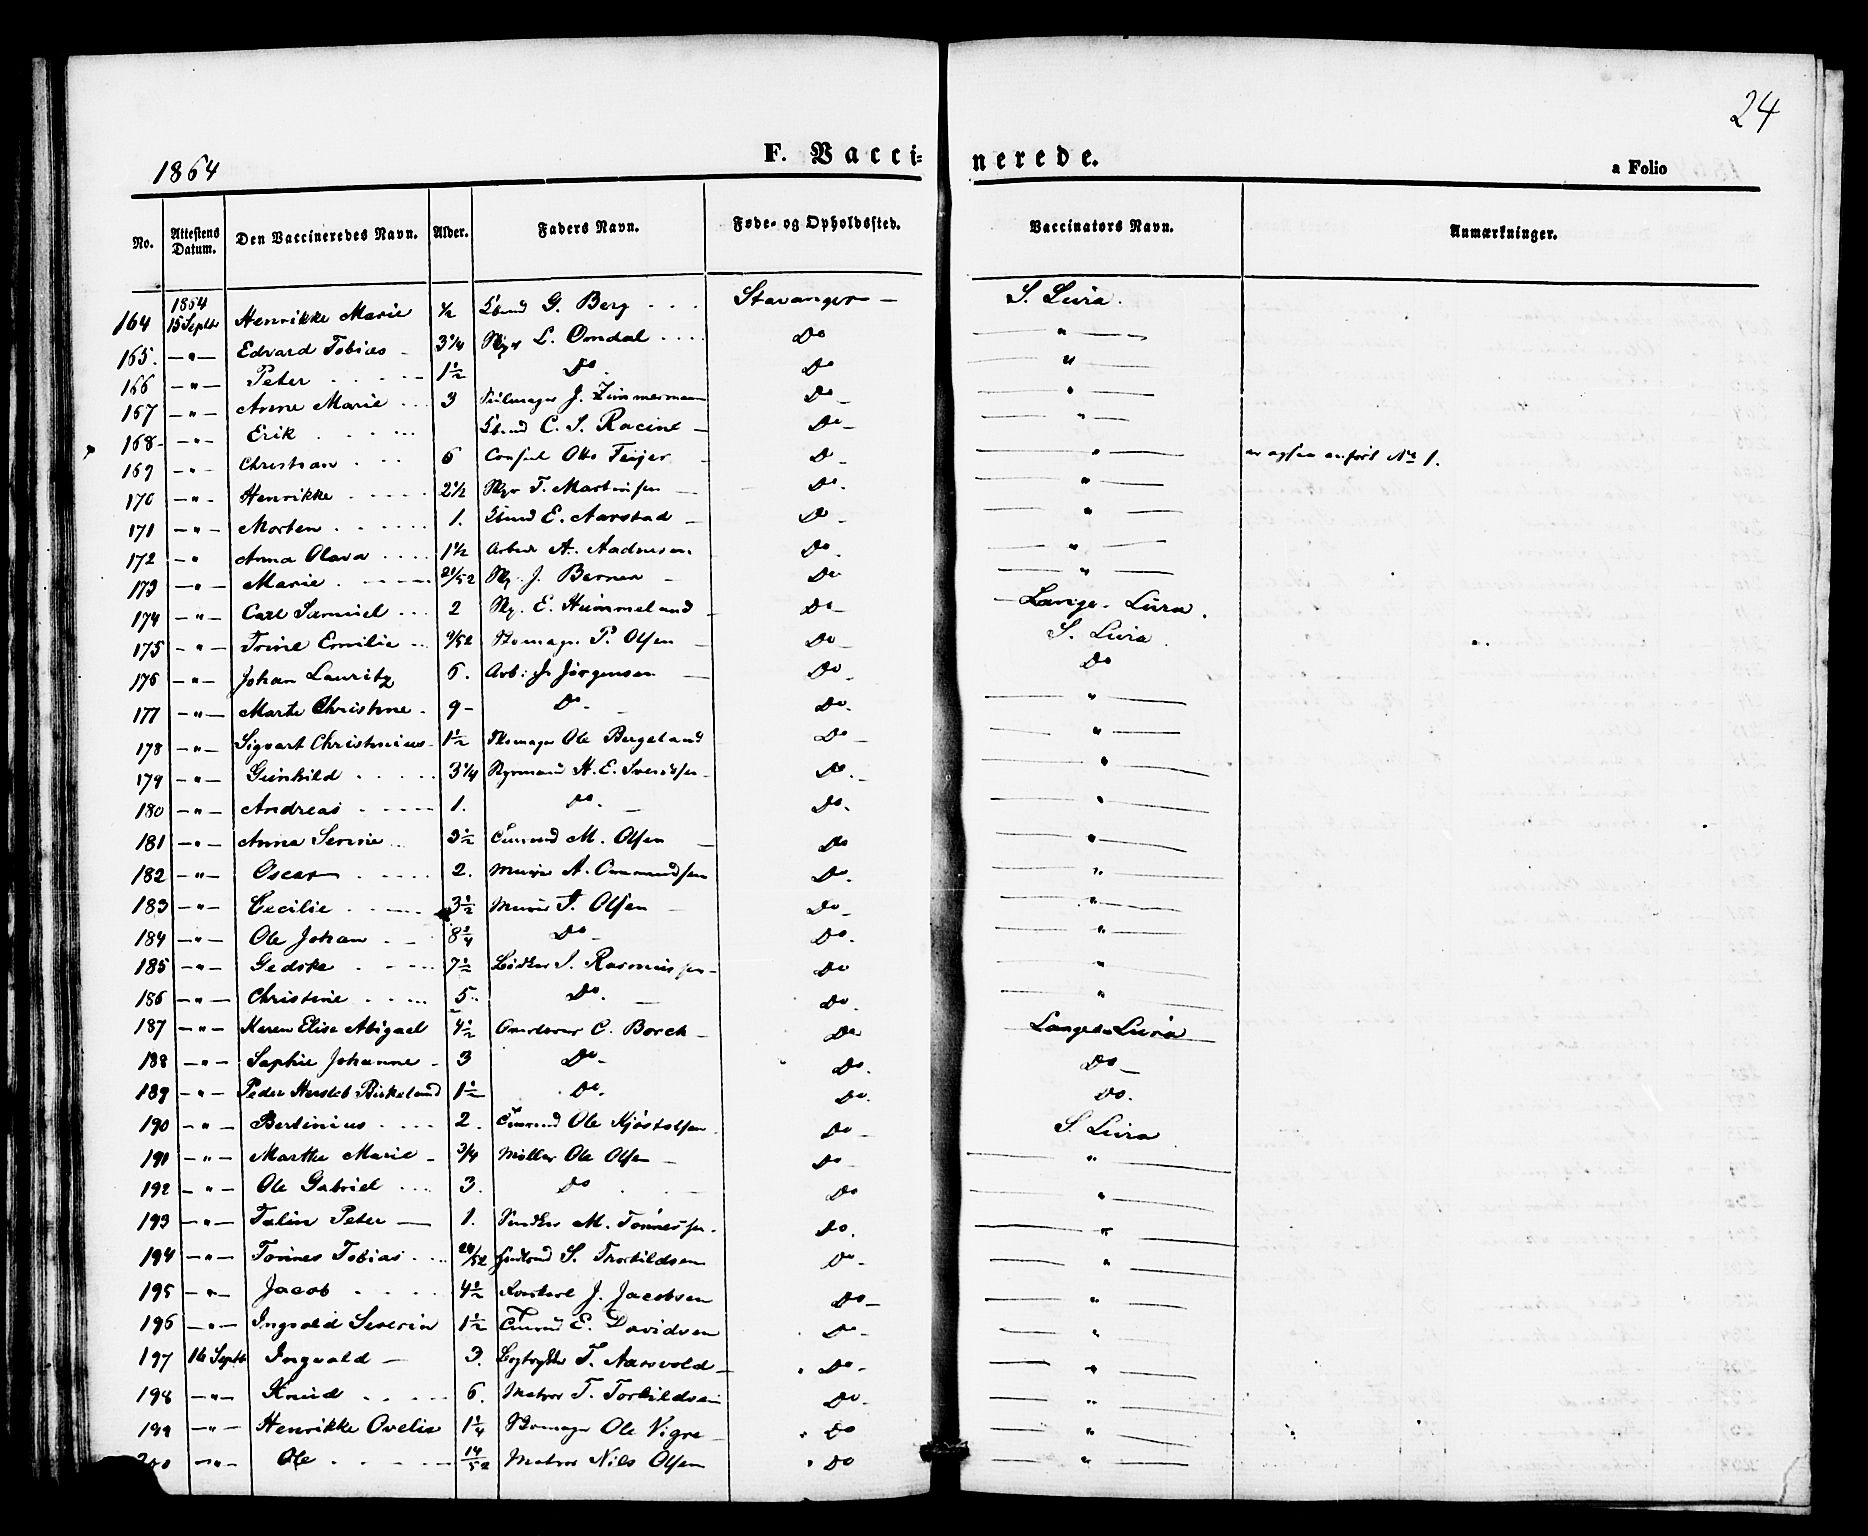 24
1864
F. Vaccinerede.
a Folio
No. Attestens Datum. Den Vaccineredes Navn. Alder. Faders Navn. Føde- og Opholdssted. Vaccinators Navn. Anmærkninger.
164 1864 15 Septbr Henrikke Marie 1/2 G. Berg Stavanger S. Lura.
165. — " — Edvard Tobias 3 1/4 L. Omdal Do — " —
166 — " — Peter 1 1/2 Do. Do — " —
167 — " — Anne Marie 3 J. Zimmerman Do — " —
168 — " — Erik C. S. Racine Do — " —
169 — " — Christian 6 Consul Otto Feijer Do — " — er ogsaa anført No 1.
170 — " — Henrikke 2 1/2 T. Martinsen Do. — " —
171 — " — Morten 1. E. Aarstad Do — " —
172 — " Anna Olava 1 1/2 Arbeid A. Aadnesen Do. — " —
173 — " — Marie 21/52 J. Bernen Do — " —
174 — " — Carl Samuel 2 E. Hummeland Do — Lange. Lura.
175 — " — Trine Emilie 9/52 P. Olsen Do S. Lura.
176 — " — Johan Lauritz 6. Arb: J. Jørgensen Do Do
177 — " — Marte Christine 9 Do Do. — " —
178 — " — Sigvart Christinius 1 1/2 Ole Bergeland Do — " —
179 — " — Gunhild 3 1/4 H. E. Svendsen Do. — " —
180 — " — Andreas 1. Do. Do. — " —
181 — " — Anna Serine 3 1/2 M. Olsen Do — " —
182 — " — Oscar 2. Murer A. Ommundsen Do. — " —
183 — " — Cecilie 3 1/2 Murer T. Olsen Do — " —
184 — " — Ole Johan 8 3/4 Do Do. — " —
185 — " — Gedske 7 1/2 Bødker S. Rasmussen Do — " —
186 — " — Christine 5 Do. Do. — " —
187 — " — Karen Elise Abigael 4 1/2 C. Borch Do Lange Lura
188 — " — Sophie Johanne 3 Do Do. Do
189 — " — Peder Hersleb Birkeland 1 1/2 Do. Do. Do.
190 — " — Bertinius 2. Ole Kjøstolsen Do S. Lura
191 — " — Marthe Marie 3/4 Møller Ole Olsen Do — " —
192 — " — Ole Gabriel 3. Do Do — " —
193 — " — Talin Peter 1. Snedker M. Tønnessen. Do. — " —
194 — " — Tønnes Tobias 24/52 S. Thorkildsen Do — " —
195 — " — Jacob 4 1/2 J. Jacobsen Do — " —
196 — " — Ingvald Severin 1 1/2 E. Davidsen Do — " —
197 16 Septb Ingvald 3. Bogtrykker T. Aarsvold Do — " —
198 — " — Knud 6. Matros T. Torkildsen Do — " —
199 — " — Henrikke Ovelia 1 1/4 Ole Vigre Do — " —
200 — " — Ole 14/52 Matros Nils Olsen Do — " —